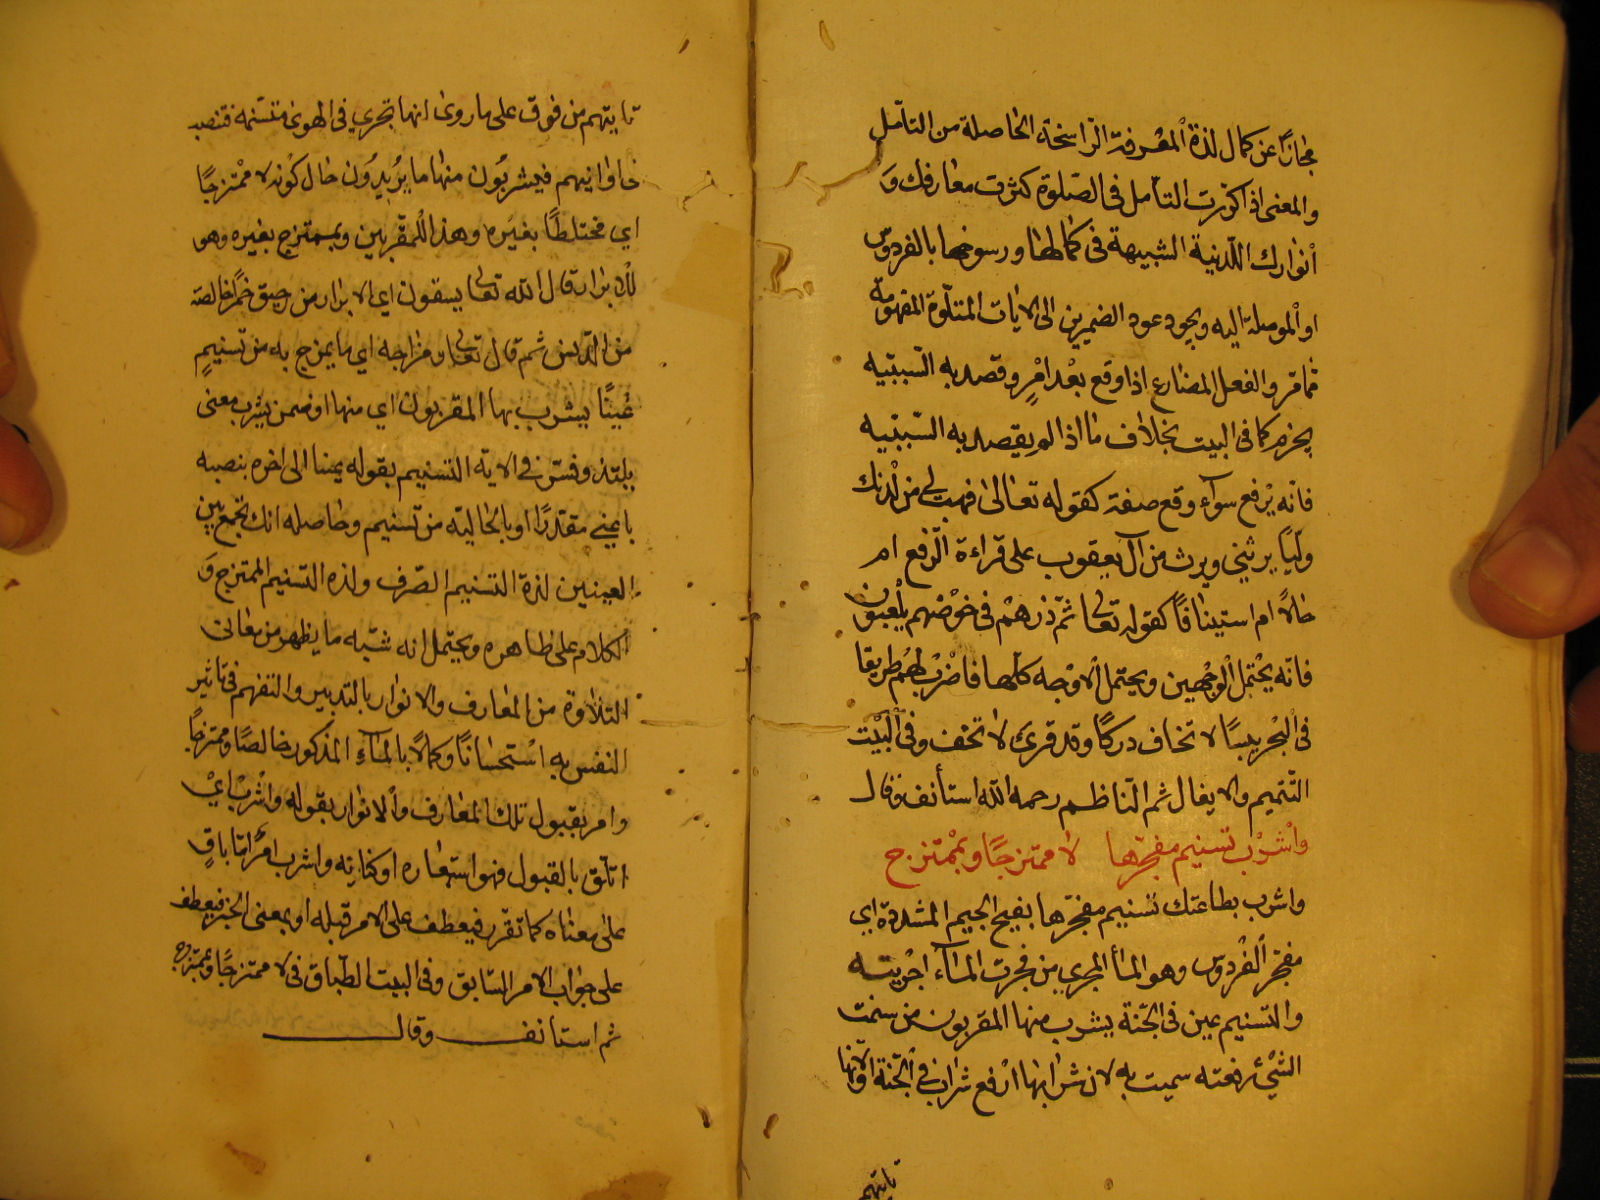 مجازًا عن كمال لذة المعرفة الرّاسخة الحاصلة من التأمل
والمعنى اذا كررت التأمل في الصّلوة كثرت معارفك وَ
أنوارك اللّدنية الشبيهة في كمالها ورسوخها بالفردوس
او الموصلة اليه ويجوز عود الضميرين الى الايات المتلوّة المفهومة
مما مر والفعل المضارع اذا وقع بعْد امْرٍ وقصد به السّببيه
يجزم كما في البيت بخلاف ما اذا لم يقصد به السّببيه
فانه يُرفع سوآء وقع صفة كقوله تعالى فهب لي من لدنك
وليّا يرثني ويرث من آل يعقوب على قراءة الرّفع ام
حالًا ام استينافًا كقوله تعالى ثمّ ذرهم في خوضهم يلعبون
فانّه يحْتمل الوجْهين ويحتمل الاوْجه كلّها فاضرب لهم طريقا
في البحْر يبسًا لا تخاف دركًا وقد قرئ لا تخف وفي البيْت
التّتميم والايغال ثم النّاظم رحمه اللّه استأنف وقال
واشْرب تسنيم مفجّرها لا ممتزجًا وبمْمتزج
واشرب بطاعتك تسنيم مفجّرها بفتح الجيم المشددة اي
مفجّر الفرْدوس وهو المأ المجري من فجرت المأٓ اجْريته
والتسنيم عين في الجنّة يشرب منها المقربون من سنمت
الشيْئ رفعته سميت به لان شرابها ارْفع شراب في الجنّة او لانّها
تايتهم
تايتهم من فوق على ما روى انها تجري في الهوى متسنمه فتنصب
في اوانيهم فيشربُون منها ما يُريدُون حال كوْنه لا ممْتزجًا
اي مختلطًا بغيَره وهذا للمقربين وبممتزج بغيره وهو
للابرار قال اللّه تعالى يسقون اي الابرار من رحيق خمرٍ خالصة
من الدّنس ثم قال تعالى ومزاجه اي ما يمزج به من تسنيمٍ
عْينًا يشرب بها المقربون اي منها او ضمن يشرب معنى
يلتذ وفسّر في الاية التسنيم بقوله عينا الى اخره بنصبه
باعني مقدرًا او بالحاليّه من تسنيم وحاصله انك تجمع بين
العينين لذة التسنيم الصّرف ولذة التسنيم الممتزج وَ
الكلام على ظاهره ويحتمل انه شبّه ما يظهر من معاني
التلاوة من المعارف والانوار بالتدبير والتفهم في تاثير
النفس به اسْتحسانًا وكمالًا بالمآء المذكور خالصًا وممتزجًا
وامر بقبول تلك المعارف والانوار بقوله واشْرب ايْ
اتلق بالقبول فهو استعاره او كنايه واشرب امرٌ امّا باقٍ
على معناه كما تقرر فيعطف على الامر قبله او بمعنى الخبر فيعطف
على جواب الامر السّابق وفي البيت الطّباق في لا ممتزجًا وبممتزج
ثم استأنف وقال